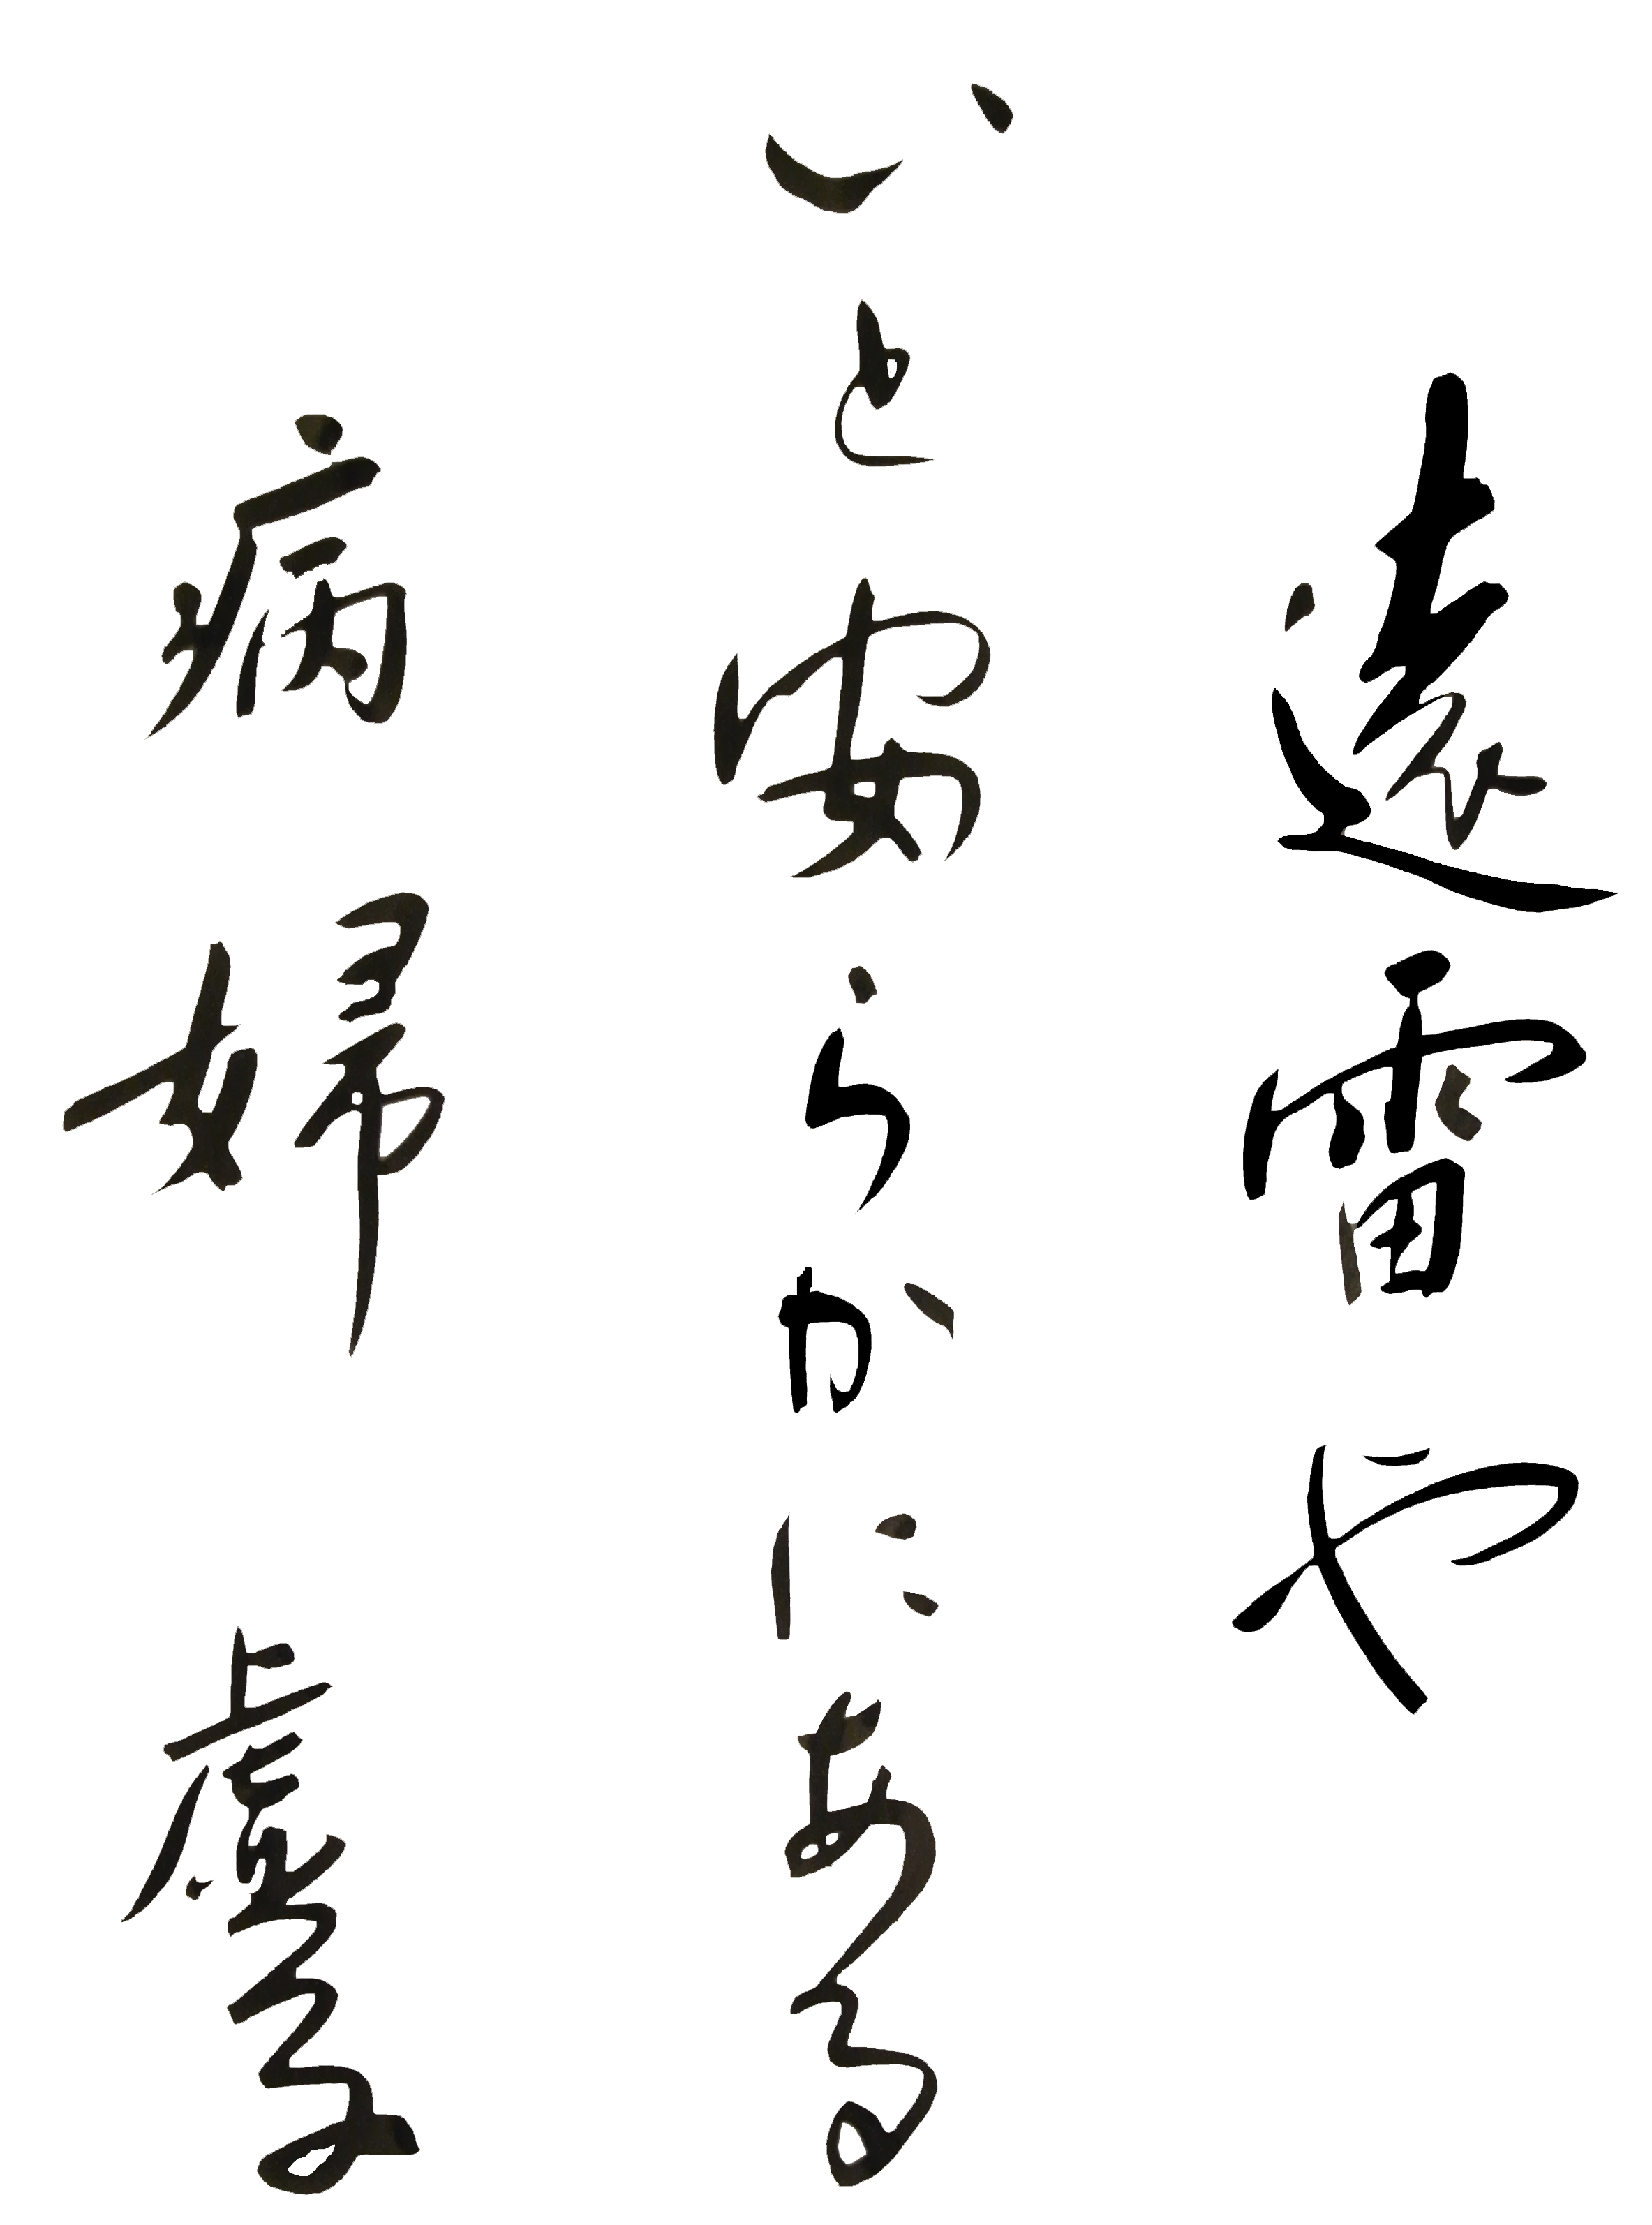 遠雷や
いと安らかにある
病婦 虚子